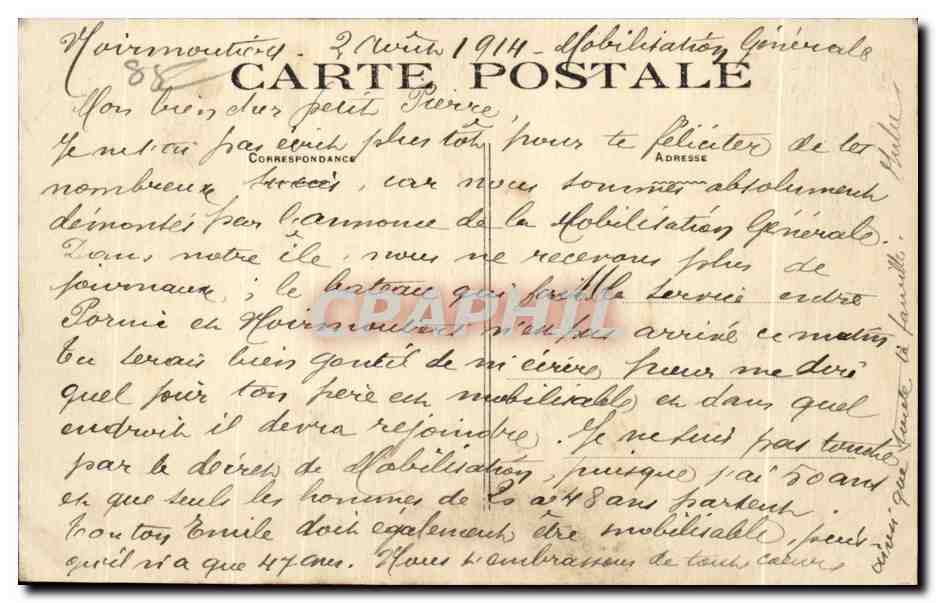 Noirmoutier - 2 Août 1914 - Mobilisation Générale
85
CARTE POSTALE
Mon bien cher petit Pierre
Je ne t'ai pas écrit plus tôt, pour te féliciter de tes
CORRESPONDANCE
ADRESSE
nombreux succès, car nous sommes absolument
démontés par l'annonce de la Mobilisation Générale.
Dans notre île, nous ne recevons plus de
journaux ; le bateau qui fait le service entre
CPARAPHIL
Pornic et Noirmoutier n'est pas arrivé ce matin
Tu serais bien gentil de m'écrire pour me dire
quel jour ton père est mobilisable et dans quel
endroit il devra rejoindre. Je ne suis pas touché
par le décret de Mobilisation, puisque j'ai 50 ans
et que seuls les hommes de 20 à 48 ans partent.
Tonton Emile doit également être mobilisable, puis-
qu'il n'a que 47 ans. Nous t'embrassons de tout cœur
ainsi que toute la famille.